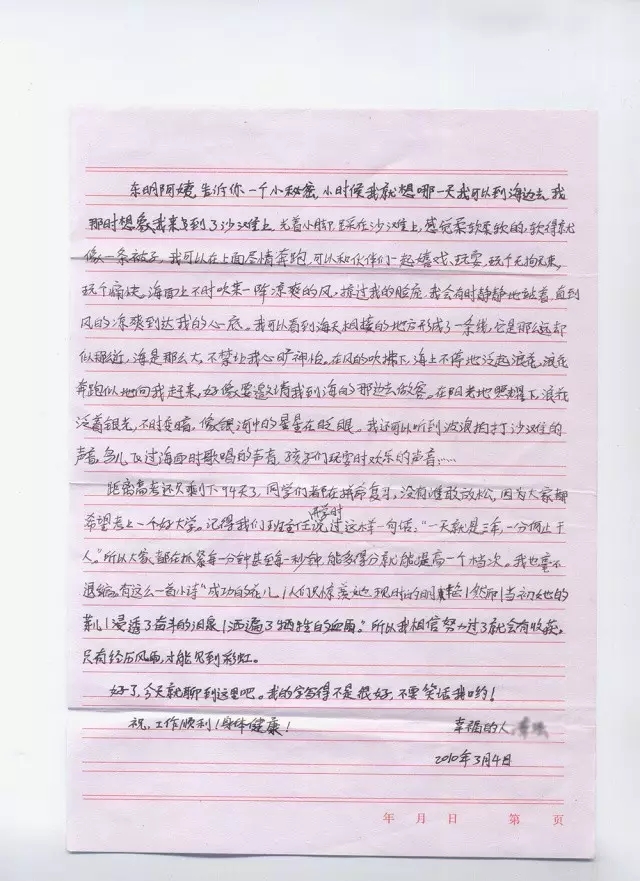 东明阿姨,告诉你一个小秘密,小时候我就想哪一天我可以到海边去,我
那时想象我来到了沙滩上,光着小脚,踩在沙滩上,感觉柔软柔软的,软得就
像一条被子,我可以在上面尽情奔跑,可以和伙伴们一起嬉戏,玩耍,玩个无拘无束,
玩个痛快。海面上不时吹来一阵凉爽的风,掠过我的脸庞,我会有时静静地站着,直到
风的凉爽到达我的心底。我可以看到海天相接的地方形成了一条线,它是那么远却
似那么近,海是那么大,不禁让我心旷神怡。在风的吹拂下,海上不停地泛起浪花,浪花
奔跑似地向我赶来,好像要邀请我到海的那边去做客。在阳光地照耀下,浪花
泛着银光,不时变暗,像银河中的星星在眨眼。我还可以听到波浪拍打沙滩的
声音,鸟儿飞过海面时歌唱的声音,孩子们玩耍时欢乐的声音……
距离高考还只剩下94天了,同学们都在拼命复习,没有谁敢放松,因为大家都
希望考上一个好大学。记得我们班主任开学时说过这样一句话:“一天就是三年,一分何止千
人。”所以大家都在抓紧每一分钟甚至每一秒钟,能多得分就能提高一个档次。我也毫不
退缩。有这么一首小诗“成功的花儿/人们只惊羡她现时的明艳/然而当初她的
芽儿/浸透了奋斗的泪泉/洒遍了牺牲的血雨。”所以我相信努力过了就会有收获。
只有经历风雨,才能见到彩虹。
好了,今天就聊到这里吧。我的字写得不是很好,不要笑话我哟!
祝:工作顺利/身体健康! 幸福的人
2010年3月4日
年 月 日 第 页